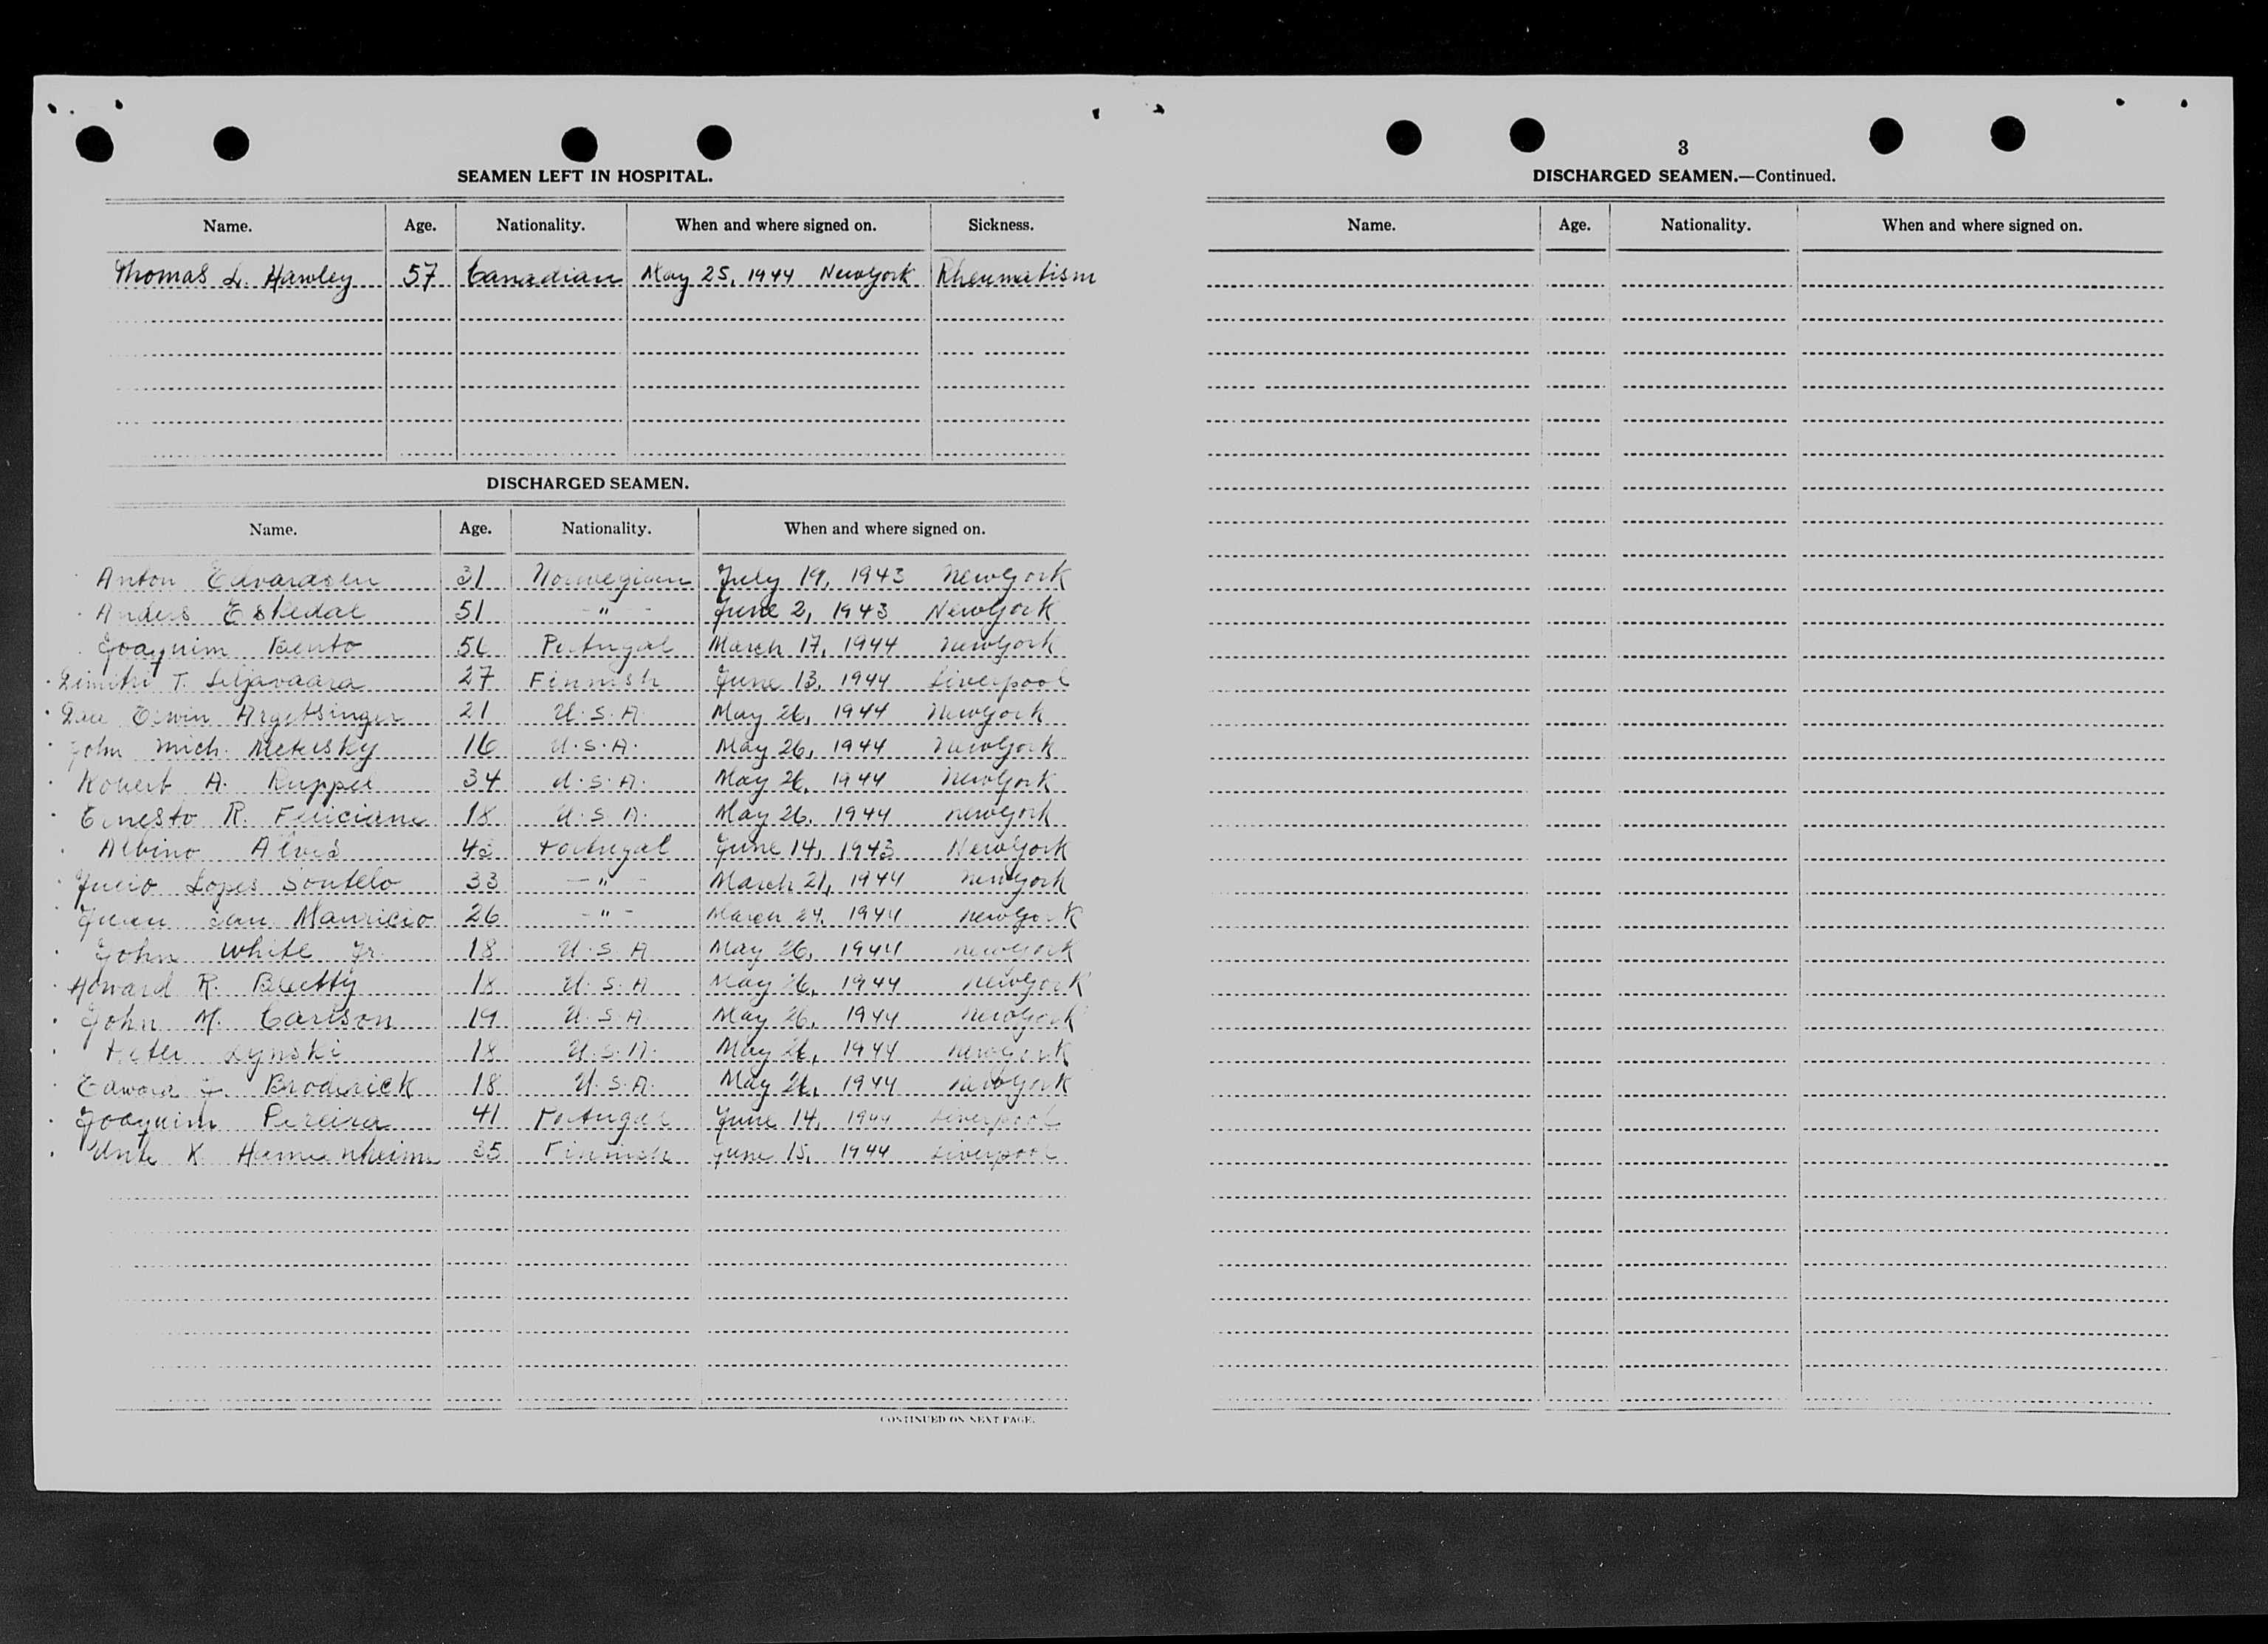 SEAMEN LEFT IN HOSPITAL.
Name. Age. Nationality. When and where signed on. Sickness.
Thomas L. Hawley 57 Canadian May 25, 1944 NewYork Rheumatism
DISCHARGED SEAMEN.
Name. Age. Nationality. When and where signed on.
Anton Edvardsen 31 Norwegian July 19, 1943 NewYork
Anders Eskedal 51 -"- June 2, 1943 NewYork
Joaquim Bento Portugal March 17, 1944 NewYork
Dimitri T. Siljavaara 27 Finnish June 13, 1944 Liverpool
Erwin Argetsinger 21 U.S.A. May 26, 1944 NewYork
John Mich. 16 U.S.A. May 26, 1944 NewYork
Robert A. Ruppel 34 U.S.A. May 26, 1944 NewYork
Ernesto R. Feliciano 18 U.S.A. May 26, 1944 NewYork
Albino Alves 43 Portugal June 14, 1943 NewYork
Lopes Soutelo 33 -"- March 21, 1944 NewYork
Juan San Mauricio 26 -"- March 24, 1944 NewYork
John White Jr. 18 U.S.A May 26, 1944 NewYork
Howard R. 18 U.S.A May 26, 1944 NewYork
John M. Carlson 19 U.S.A May 26, 1944 NewYork
Peter Lynski 18 U.S.A. May 26, 1944 NewYork
Edward J. Broderick 18 U.S.A. May 26, 1944 NewYork
Joaquim Pereira 41 Portugal June 14, 1944 Liverpool
K. 35 Finnish June 15, 1944 Liverpool
CONTINUED ON NEXT PAGE.
3
DISCHARGED SEAMEN.—Continued.
Name. Age. Nationality. When and where signed on.